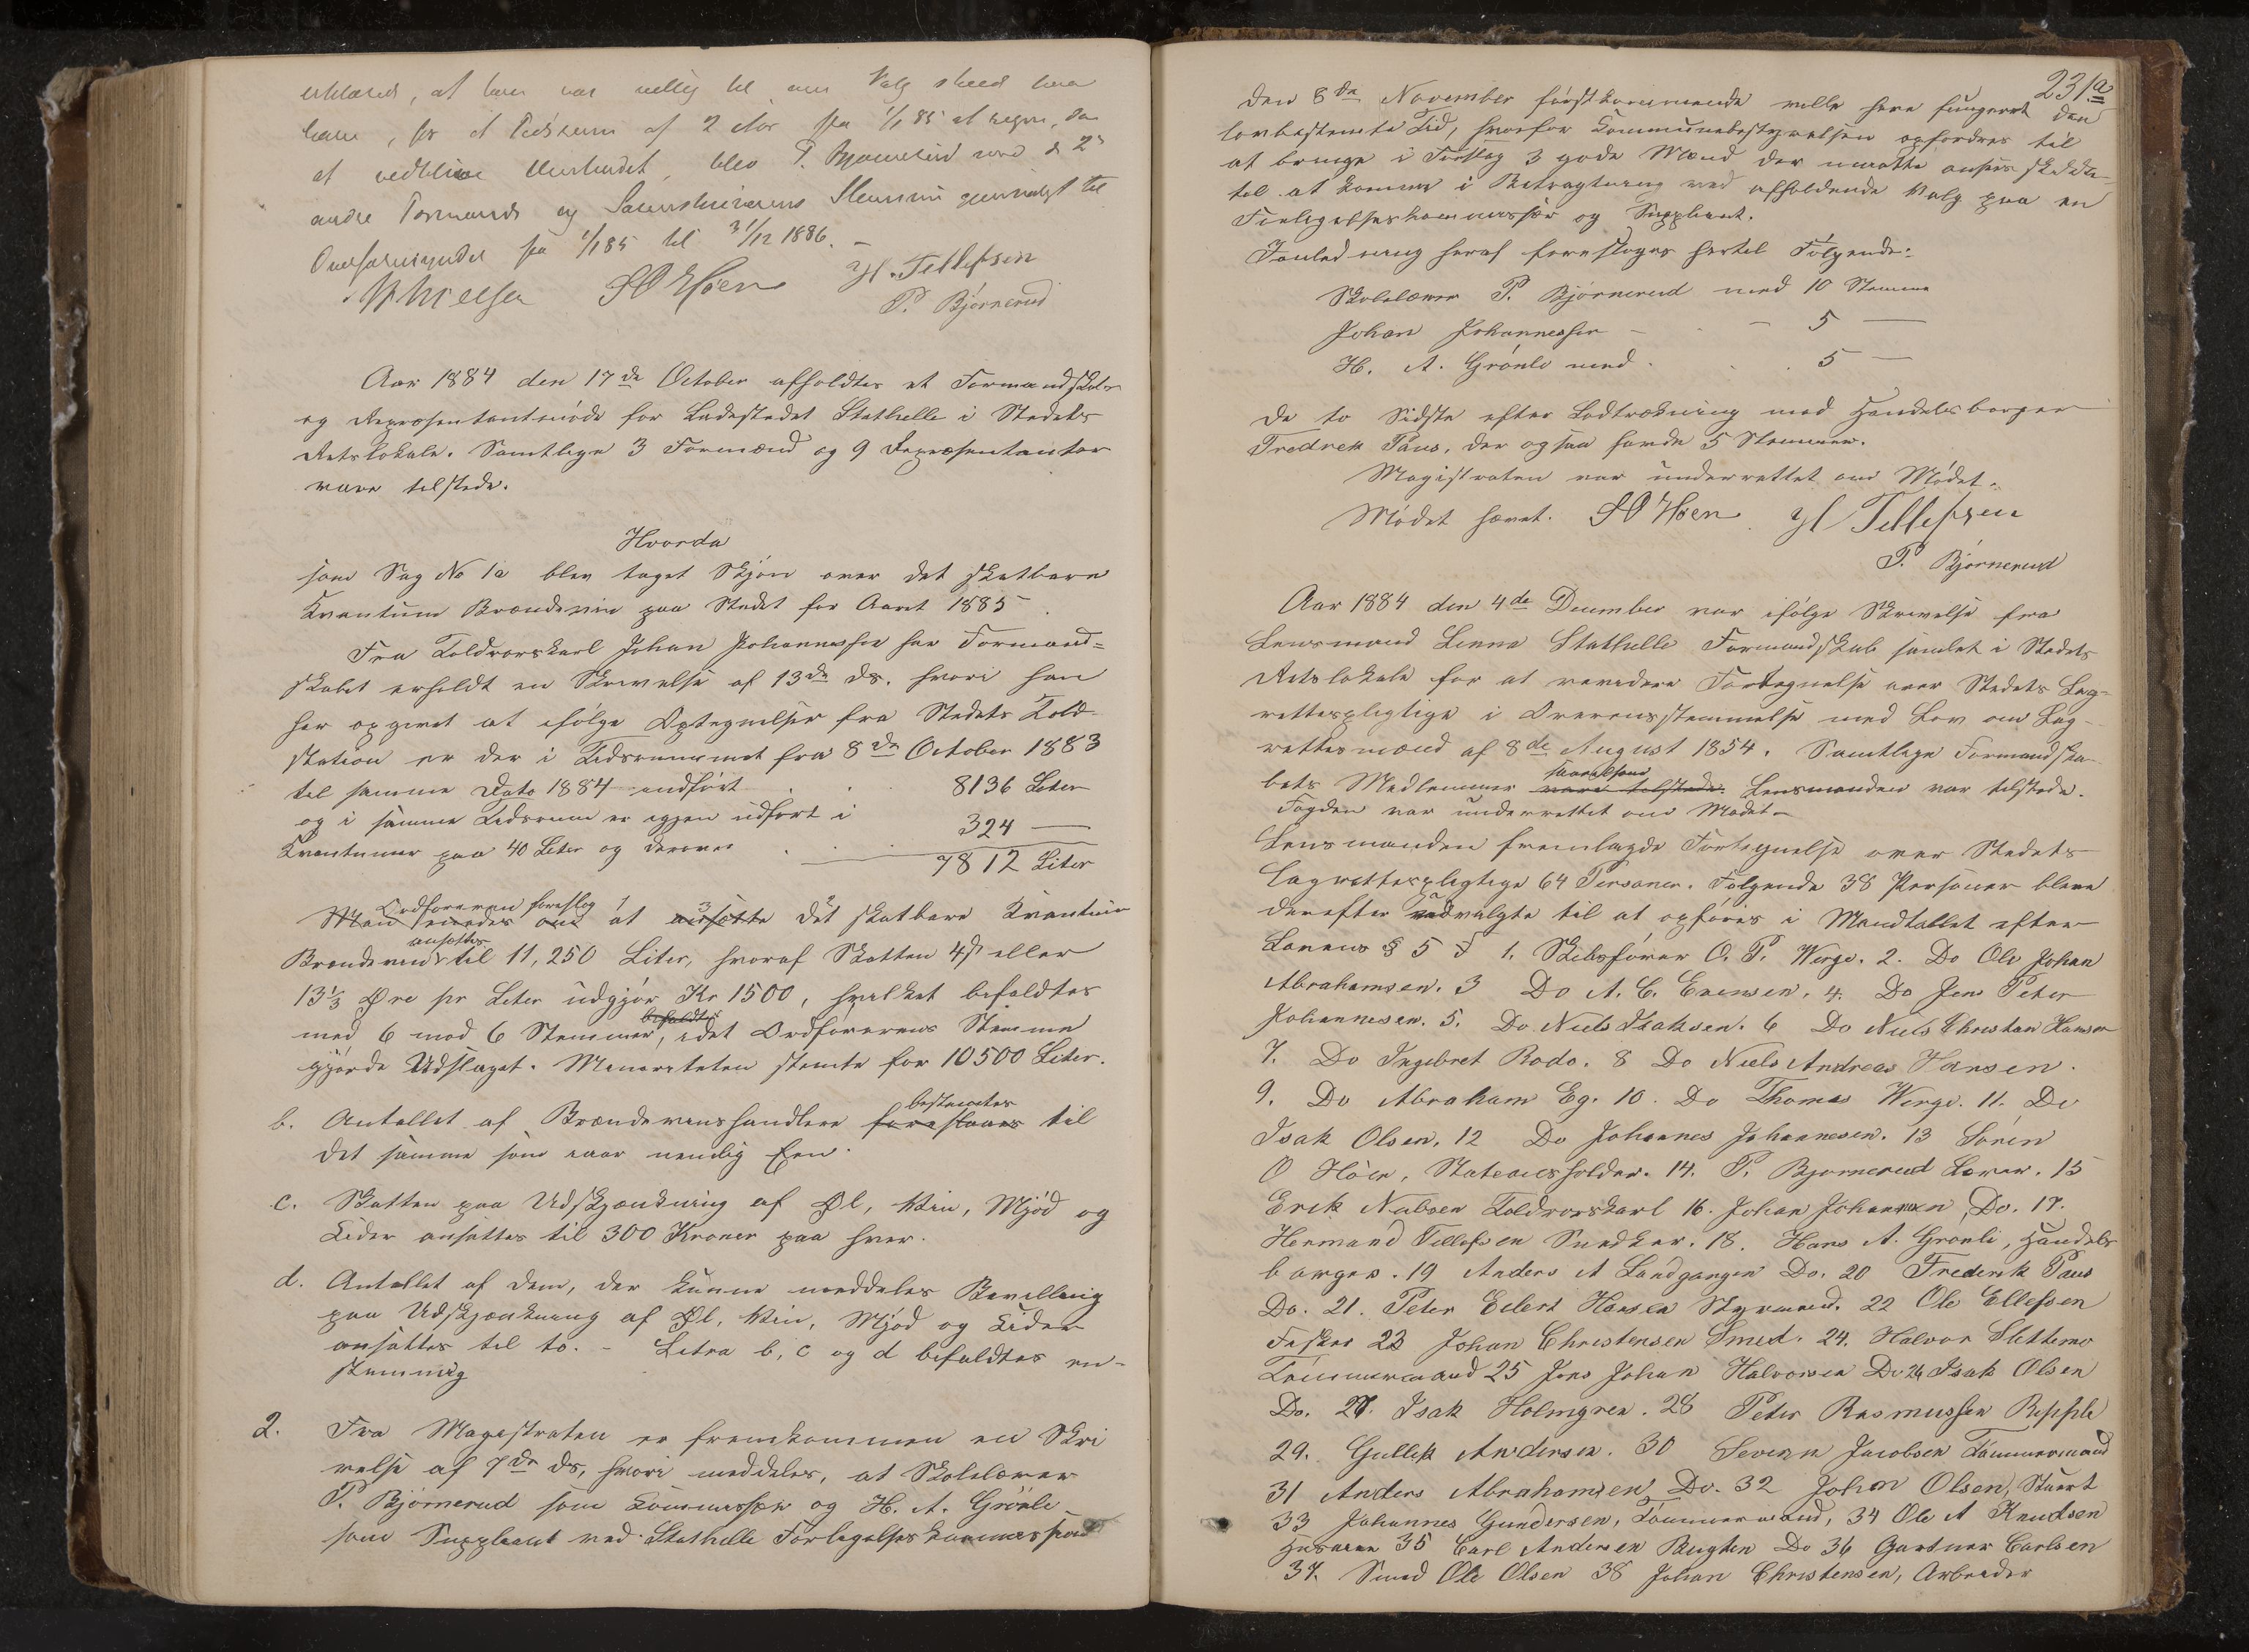 erklæret, at han var villig til
have, for et Tidsrum af 2 Aar fra 1/1 85 at regne,
at vedblive blev P. Bjørnerud med
andre Formænd og gjenvalgt til
fra 1/1 85 til 31/12 1886.
S O Høen Hl. Tellefsen
P. Bjørnerud
Aar 1884 den 17de October afholdtes et Formandskabs
og Repræsentantmøde for Ladestedet Stathelle i Stedets
Retslokale. Samtlige 3 Formænd og 9 Repræsentanter
vare tilstede.
Hvorda
som Sag No 1a blev taget Skjøn over det skatbare
Kvantum Brændeviin paa Stedet for Aaret 1885.
Fra Toldvorskarl Johan Johannesen har Formand=
skabet erholdt en Skrivelse af 13de ds. hvori han
har opgivet at ifølge Optegnelser fra Stedets Told
station er der i Tidsrummet fra 8de October 1883
til samme Dato 1884 indført 8136 Liter
og i samme Tidsrum er igjen udført i
Kvantumer paa 40 Liter og derover 324 —
7812 Liter
Ordføreren foreslog
Man enedes om at ansætte det skatbare Kvantum
ansættes
Brændeviin til 11,250 Liter, hvoraf Skatten 4 ß eller
13 1/3 Øre pr Liter udgjør Kr 1500, hvilket befaldtes
befaldtes
med 6 mod 6 Stemmer, idet Ordførerens Stemme
gjorde Udslaget. Minoriteten stemte for 10500 Liter.
bestemtes
b. Antallet af Brændevinshandlere foreslaaes til
det samme som iaar nemlig Een.
c. Skatten paa Udskjænkning af Øl, Vin, Mjød og
Cider ansattes til 300 Kroner paa hver.
d. Antallet af dem, der kunne meddeles Bevilling
paa Udskjænkning af Øl, Vin, Mjød og Cider
ansattes til to. - Litra b, c og d befaldtes en-
stemmig
2. Fra Magistraten er fremkommen en Skri
velse af 7de ds, hvori meddeles, at Skolelærer
P. Bjørnerud som Commissær og H. A. Grønli
som Suppleant ved Stathelle Forligelseskommission
231a
den 8de November førstkommende ville have fungeret den
lovbestemte Tid, hvorfor Kommunebestyrelsen opfordres til
at bringe i Forslag 3 gode Mænd der maatte ansees skikkede
til at komme i Betragtning ved afholdende Valg paa en
Forligelseskommissær og Suppleant.
I Anledning heraf foresloges hertil Følgende:
Skolelærer P. Bjørnerud med 10 Stemmer
Johan Johannessen - - 5 —
H. A. Grønli med - 5 —
de to Sidste efter Lodtrækning med Handelsborger
Fredrek Paus, der ogsaa havde 5 Stemmer.
Magistraten var underrettet om Mødet.
Mødet hævet. S O Høen Hl Tellefsen
P. Bjørnerud
Aar 1884 den 4de December var ifølge Skrivelse fra
Lensmand Linna Stathelle Formandskab samlet i Stedets
Retslokale for at revidere Fortegnelse over Stedets Lag-
rettespligtige i Overensstemmelse med Lov om Lag-
rettesmænd af 8de August 1854. Samtlige Formandska-
saavelsom
bets Medlemmer vare tilstede. Lensmanden var tilstede.
Fogden var underrettet om Mødet -
Lensmanden fremlagde Fortegnelse over Stedets
Lagrettespligtige 64 Personer. Følgende 38 Personer bleve
derefter udvalgte til at opføres i Mandtallet efter
Lovens § 5: 1. Skibsfører O. P. Werge. 2. Do Ole Johan
Abrahamsen. 3 Do A. C. Evensen. 4. Do Jens Peter
Johannesen. 5. Do Niels Isaksen. 6 Do Niels Christian Hansen
7. Do Ingebret Rodo. 8 Do Niels Andreas Hansen.
9. Do Abraham Eg. 10. Do Thomas Werge. 11. Do
Isak Olsen. 12 Do Johannes Johannesen. 13 Søren
O Høen, Stationsholder. 14. P. Bjørnerud Lærer. 15
Erik Nielsen Toldvorskarl 16. Johan Johannesen, Do. 17.
Hermand Tellefsen Snedker. 18. Hans A. Grønli, Handels
borger. 19 Anders A Landgangen Do. 20 Frederik Paus
Do. 21. Peter Eilert Hansen Styrmand. 22 Ole Ellefsen
Fisker 23 Johan Christensen Smed. 24. Halvor Slettemo
Tømmermand 25 Jens Johan Halvorsen Do 26 Isak Olsen
Do. 27. Isak Holmgren. 28 Peter Rasmussen Repple
29. Gullek Andersen. 30 Severin Jacobsen Tømmermand
31 Anders Abrahamsen Do. 32 Johan Olsen, Stuert
33 Johannes Gundersen, Tømmermand, 34 Ole A Knudsen
Husman 35 Carl Andersen Bugten Do 36 Gartner Carlsen
37. Smed Ole Olsen 38 Johan Christensen, Arbeider